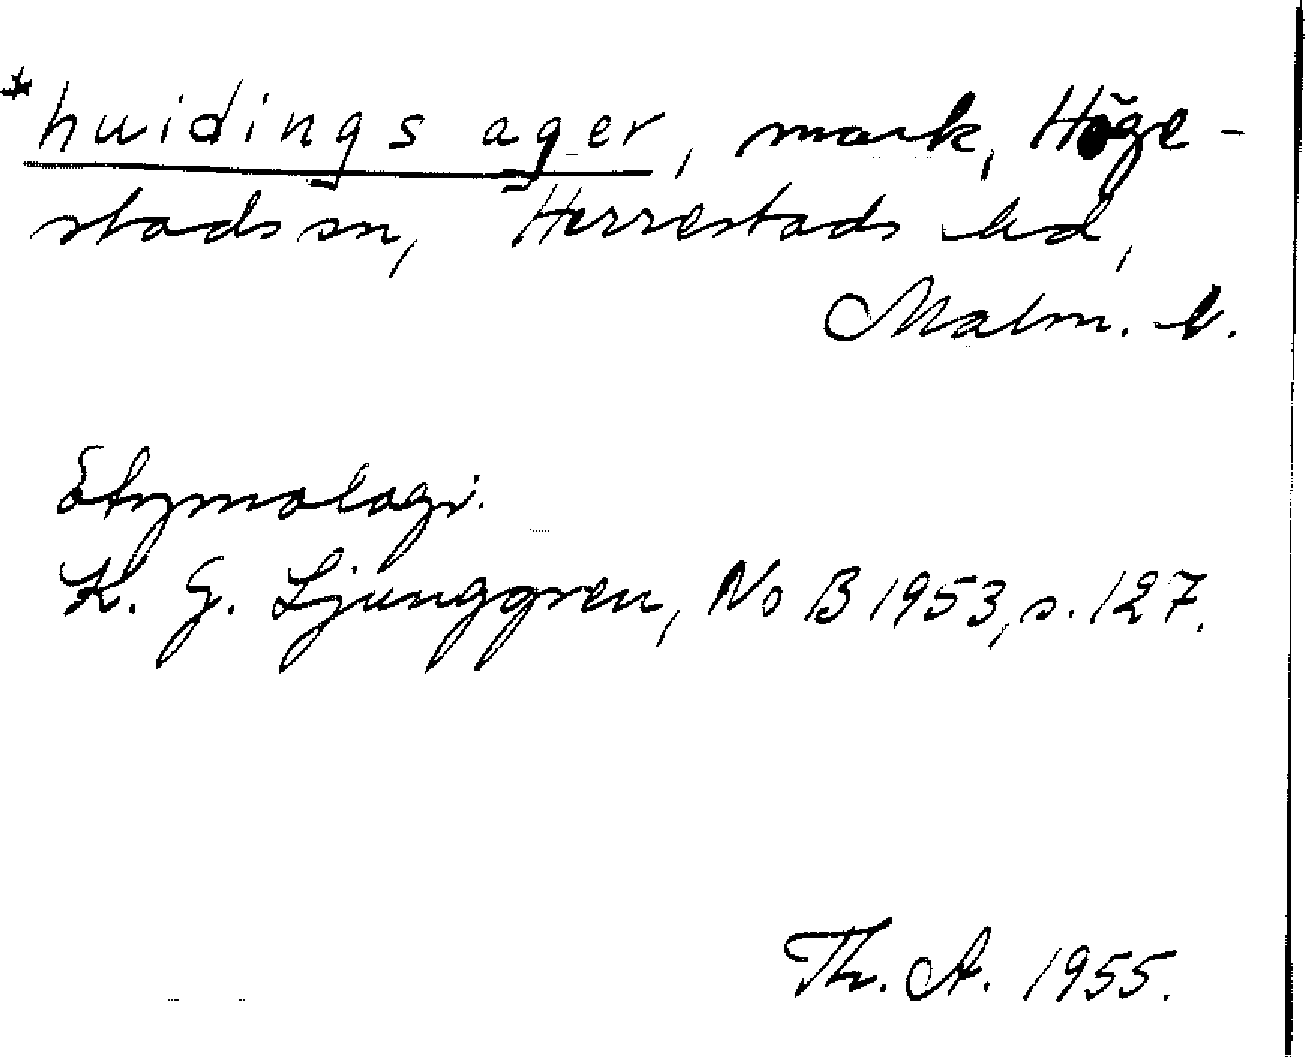 *huidings ager, mark, Höge-
stads sn, Herrestads hd,
Malm. l.
Etymologi.
K. G. Ljunggren, NoB 1953, s. 127.
Th. A. 1955.